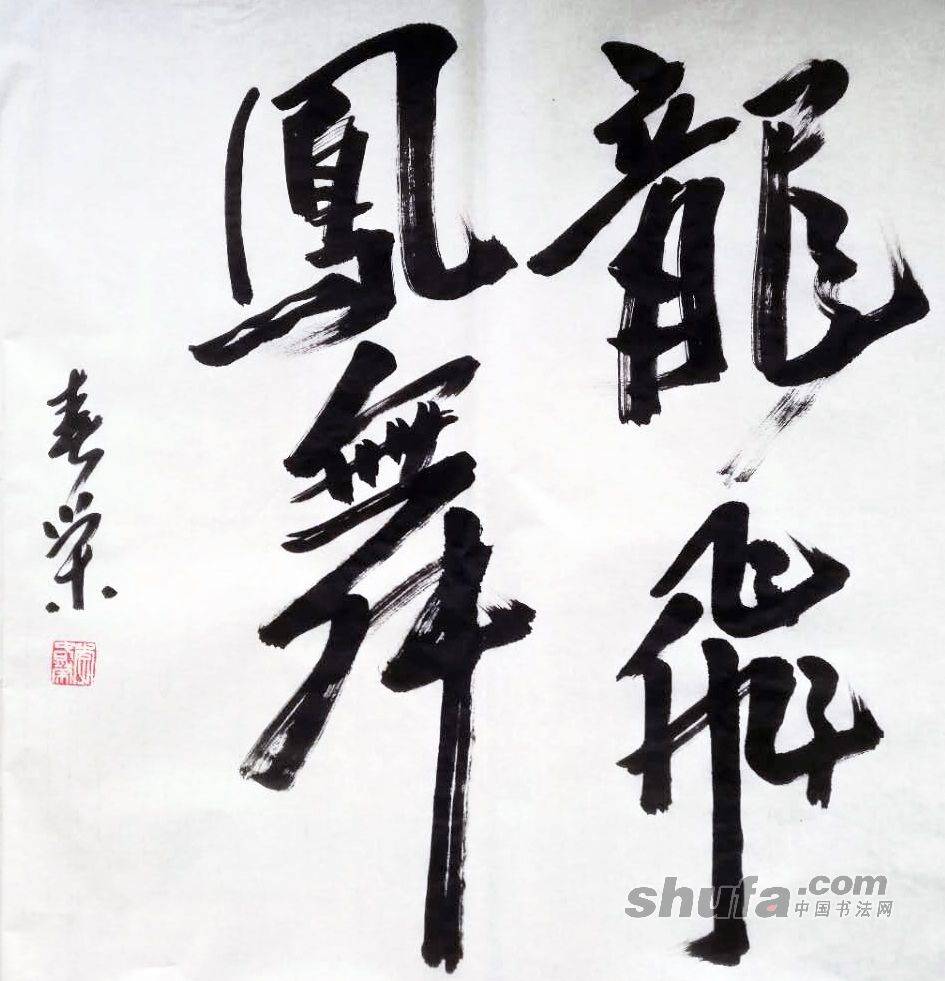 龍飛
鳳舞
春荣
shufa.com
中国书法网